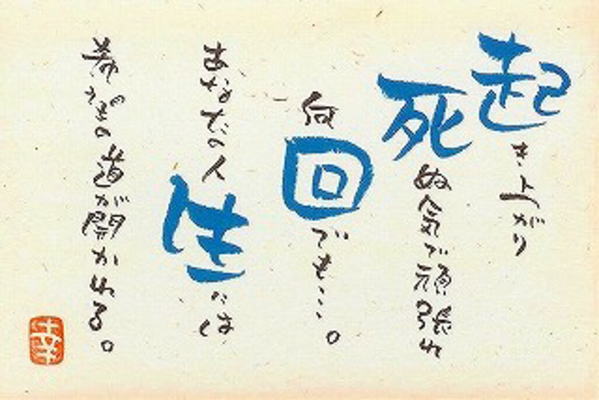 起き上がり
死ぬ気で頑張れ
何回でも…。
あなたの人生には
希ぼうの道が開かれる。
幸